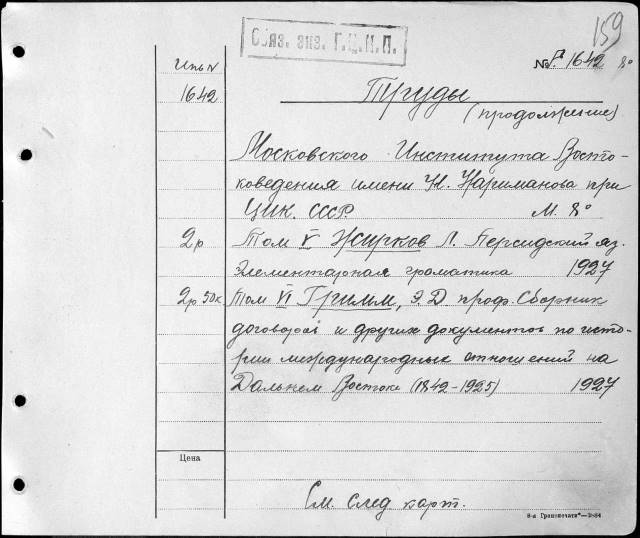 Обяз. экз. Г.Ц.К.П.
159
№ 1642 8°
Инв N
1642
Труды
(продолжение)
Московского Института Восто-
коведения имени Н. Нариманова при
ЦИК. СССР М. 8°
2р Том V Жирков Л. Персидский яз.
Элементарная граматика 1927
2р 50к Том VI Гримм, Э. Д проф. Сборник
договоров и других документов по исто-
рии международных отношений на
Дальнем Востоке (1842-1925) 1927
Цена
См. след карт.
8-я Гранпечати"—2-84